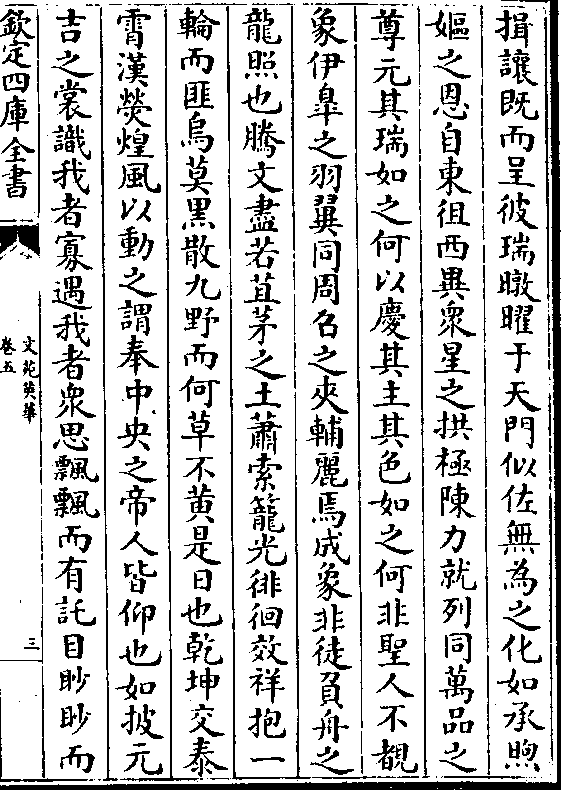 揖讓既而呈彼瑞暾曜于天門似佐無為之化如承煦
嫗之恩自東徂西異衆星之拱極陳力就列同萬品之
尊元其瑞如之何以慶其主其色如之何非聖人不覩
象伊臯之羽翼同周召之夾輔麗焉成象非徒負舟之
龍照也騰文盡若苴茅之土蕭索籠光徘徊效祥抱一
輪而匪烏莫黑散九野而何草不黄是日也乾坤交泰
霄漢熒煌風以動之謂奉中央之帝人皆仰也如披元
吉之裳識我者寡遇我者衆思飄飄而有託目眇眇而
欽定四庫全書
文苑英華
卷五
三